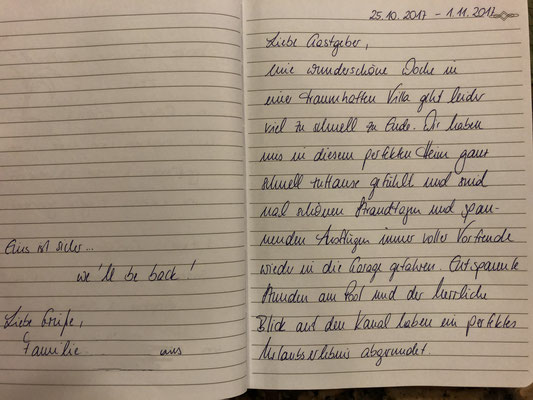 25.10.2017 - 1.11.2017
Liebe Gastgeber,
eine wunderschöne Woche in
einer traumhaften Villa geht leider
viel zu schnell zu Ende. Wir haben
uns in diesem perfekten Heim ganz
schnell zuhause gefühlt und sind
nach schönen Strandtagen und span-
nenden Ausflügen immer voller Vorfreude
wieder in die Garage gefahren. Entspannte
Stunden am Pool und der herrliche
Blick auf den Kanal haben ein perfektes
Urlaubserlebnis abgerundet.
Eins ist sicher...
we'll be back!
Liebe Grüße,
Familie aus